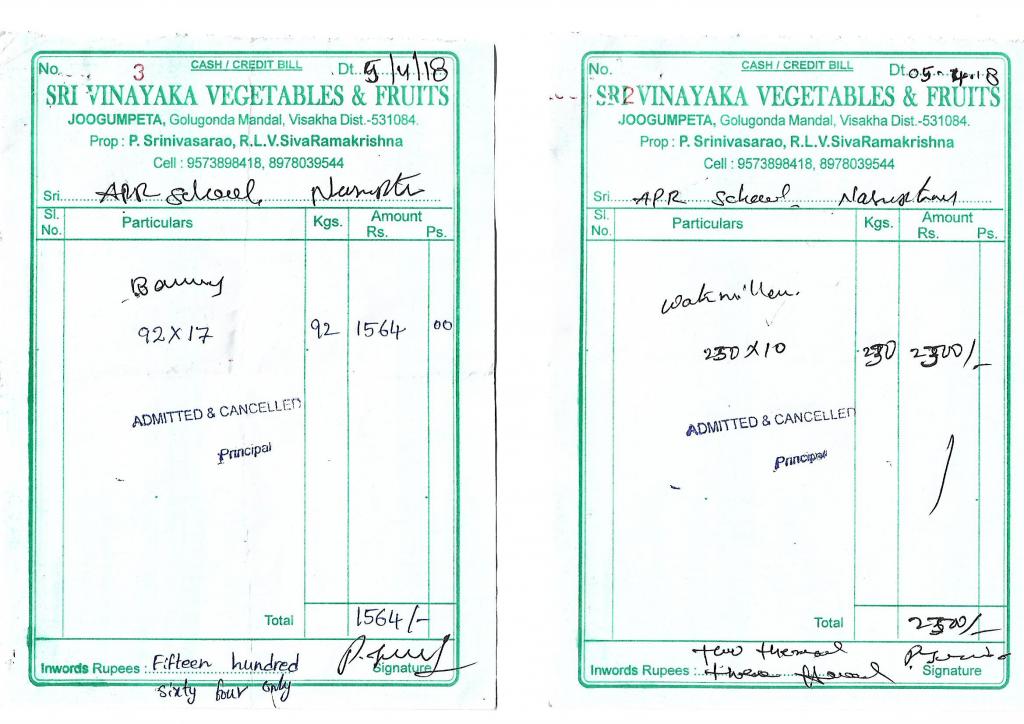 No. 3 CASH / CREDIT BILL Dt. 5/4/18
SRI VINAYAKA VEGETABLES & FRUITS
JOOGUMPETA, Golugonda Mandal, Visakha Dist.-531084.
Prop : P. Srinivasarao, R.L.V.SivaRamakrishna
Cell : 9573898418, 8978039544
Sri. APR School
Sl. No. Particulars Kgs. Amount Rs. Ps.
92 X 17 92 1564 00
ADMITTED & CANCELLED
Principal
Total 1564/-
Inwords Rupees : Fifteen hundred Signature
sixty four only
No. 2 CASH / CREDIT BILL Dt. 05-4-18
SRI VINAYAKA VEGETABLES & FRUITS
JOOGUMPETA, Golugonda Mandal, Visakha Dist.-531084.
Prop : P. Srinivasarao, R.L.V.SivaRamakrishna
Cell : 9573898418, 8978039544
Sri. APR School
Sl. No. Particulars Kgs. Amount Rs. Ps.
230 X 10 230 2300/-
ADMITTED & CANCELLED
Principal
Total 2300/-
Inwords Rupees : Signature